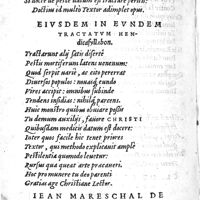 Doctius id multò Textor adimplet opus.
EIVSDEM IN EVNDEM
TRACTATVM HEN-
decasyllabon.
Tractarunt alij satis disertè
Pestis mortiferum latens uenenum:
Quod serpit uariè, ac citò pererrat
Diuersos populos: nouasq́ eundo
Vires accipit: omnibus subinde
Tendens insidias: nihilq́ parcens.
Huic monstro quibus obuiare posse
Tu demum auxilijs, fauore CHRISTI
Quibusdam medicis datum est docere:
Inter quos facilè hic tenet priores
Textor, qui methodo explicauit amplè
Pestilentia quomodo leuetur:
Rursus qua queat arte præcaueri.
Hoc pro munere tu des parenti
Gratias age Christiane Lector.
IEAN MARESCHAL DE